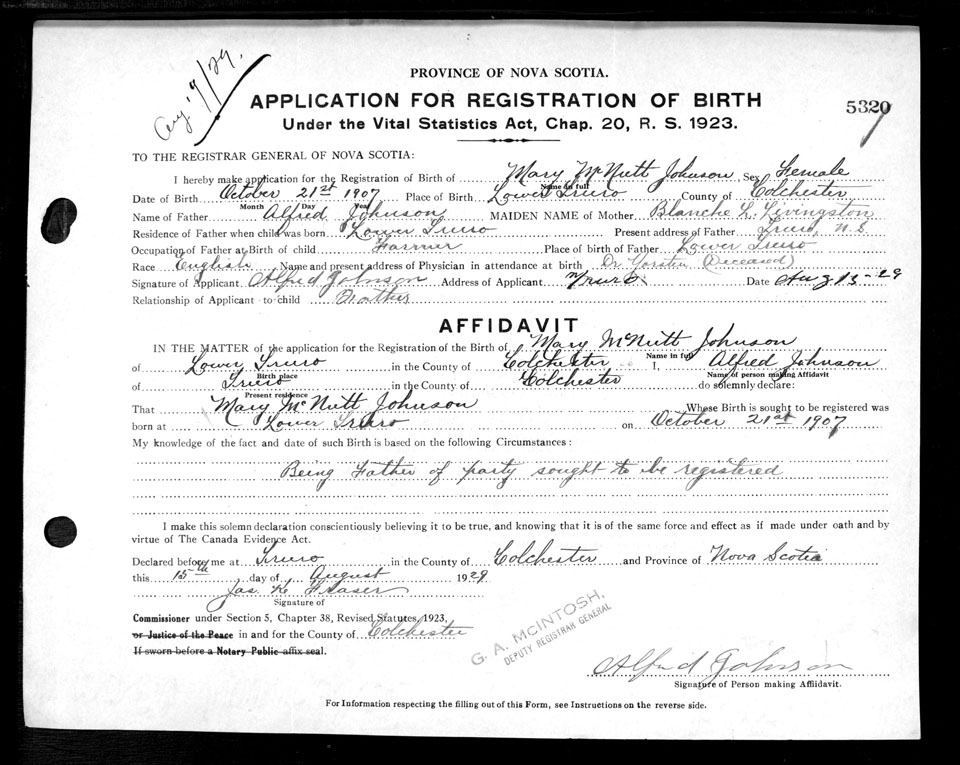 Aug. 17/29.
PROVINCE OF NOVA SCOTIA.
APPLICATION FOR REGISTRATION OF BIRTH
5320
Under the Vital Statistics Act, Chap. 20, R. S. 1923.
TO THE REGISTRAR GENERAL OF NOVA SCOTIA:
I hereby make application for the Registration of Birth of Mary McNutt Johnson, Sex Female
Name in full
Date of Birth October 21st 1907 Place of Birth Lower Truro County of Colchester
Month Day Year
Name of Father Alfred Johnson MAIDEN NAME of Mother Blanche L. Livingston
Residence of Father when child was born Lower Truro Present address of Father Truro, N.S
Occupation of Father at Birth of child Farmer Place of birth of Father Lower Truro
Race English Name and present address of Physician in attendance at birth Dr Yorston (Deceased)
Signature of Applicant Alfred Johnson Address of Applicant Truro Date Aug 15-29
Relationship of Applicant to child Father
AFFIDAVIT
IN THE MATTER of the application for the Registration of the Birth of Mary McNutt Johnson
Name in full
of Lower Truro in the County of Colchester I, Alfred Johnson
Birth place Name of person making Affidavit
of Truro in the County of Colchester do solemnly declare:
Present residence
That Mary McNutt Johnson Whose Birth is sought to be registered was
born at Lower Truro on October 21st 1907
My knowledge of the fact and date of such Birth is based on the following Circumstances:
Being Father of party sought to be registered
I make this solemn declaration conscientiously believing it to be true, and knowing that it is of the same force and effect as if made under oath and by
virtue of The Canada Evidence Act.
Declared before me at Truro in the County of Colchester and Province of Nova Scotia
this 15th day of August 1929
Jas. K. Fraser
Signature of
Commissioner under Section 5, Chapter 38, Revised Statutes, 1923,
or Justice of the Peace in and for the County of Colchester
If sworn before a Notary Public affix seal.
G. A. MCINTOSH,
DEPUTY REGISTRAR GENERAL
Alfred Johnson
Signature of Person making Affidavit.
For Information respecting the filling out of this Form, see Instructions on the reverse side.